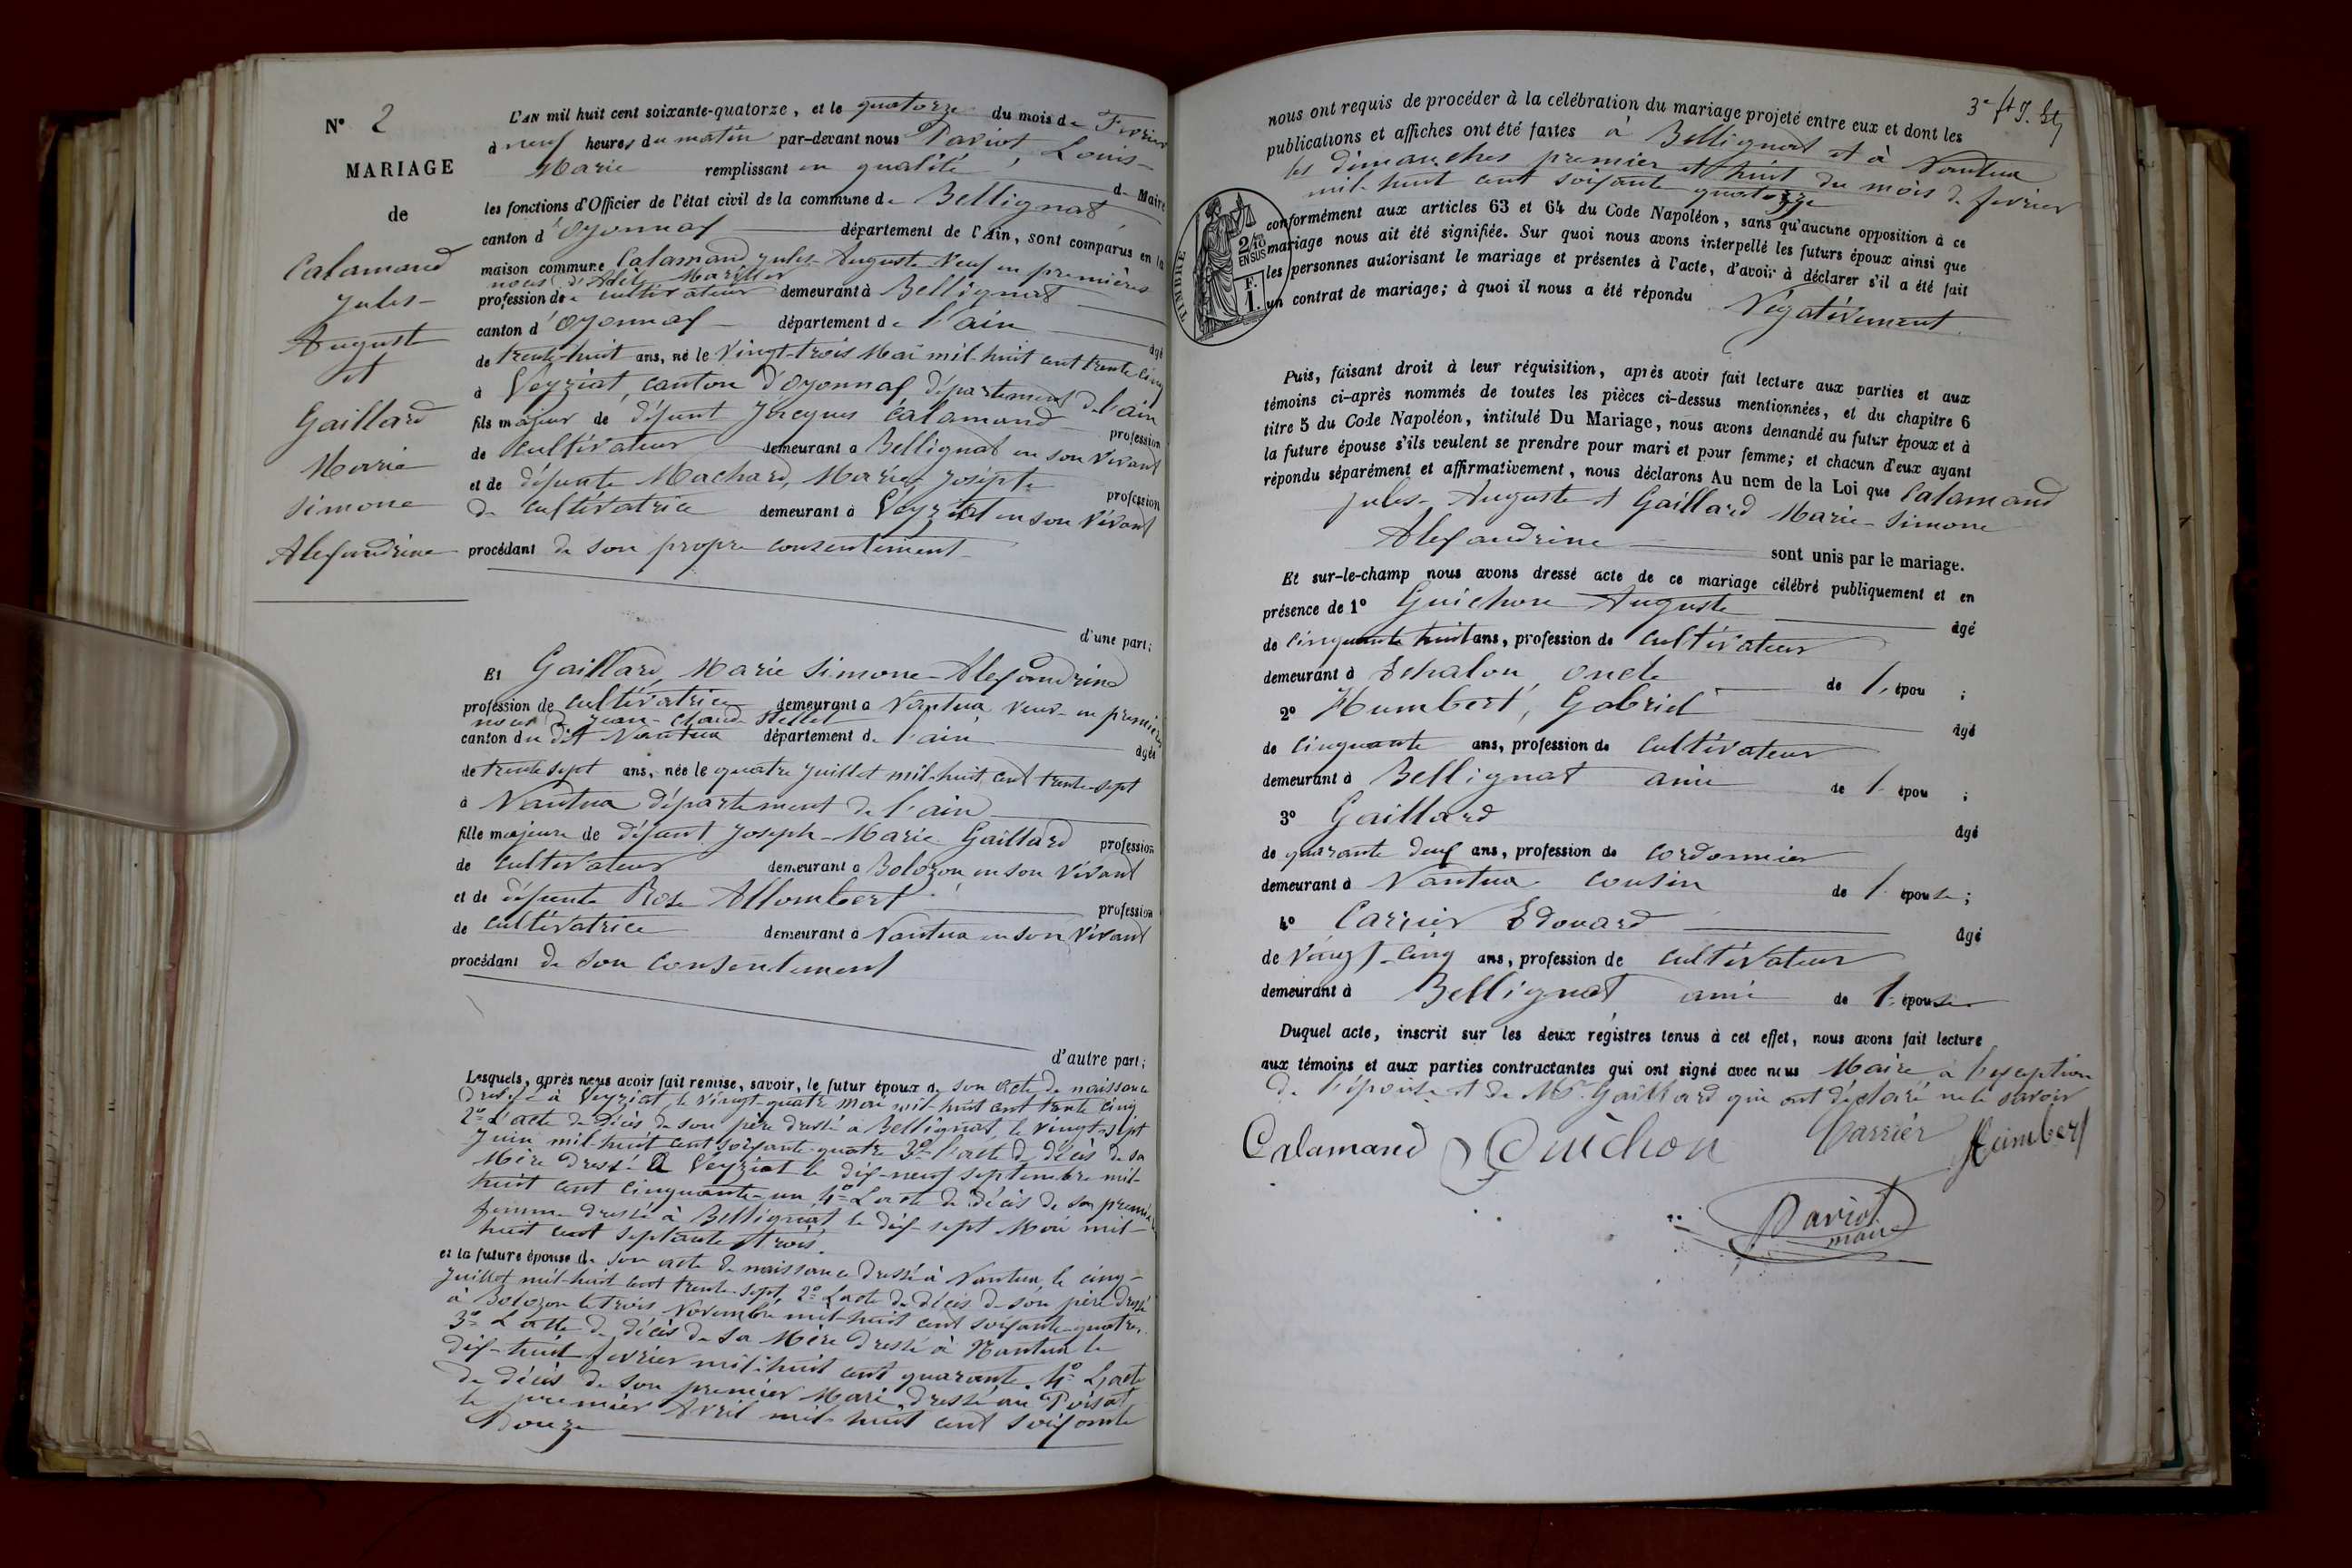 N° 2
MARIAGE
de
Calamand
Jules-
Auguste
et
Gaillard
Marie
Simone
Alexandrine
L'AN mil huit cent soixante-quatorze, et le quatorze du mois de Fevrier
à neuf heures du matin par-devant nous Daviot, Louis-
Marie remplissant en qualité de Maire
les fonctions d'Officier de l'état civil de la commune de Bellignat
canton d'Oyonnax département de l'Ain, sont comparus en la
maison commune Calamand Jules-Auguste Veuf en premières
noces d'Adèle
profession de cultivateur demeurant à Bellignat
canton d'Oyonnax département de l'ain âgé
de trente-huit ans, né le Vingt-trois Mai mil-huit cent trente cinq
à Veyziat, canton d'Oyonnax département de l'ain
fils majeur de défunt Jacques Calamand profession
de Cultivateur demeurant à Bellignat en son Vivant
et de défunte Machard, Marie Josephte profession
de Cultivatrice demeurant à Veyziat en son Vivant
procédant de son propre consentement
d'une part;
Et Gaillard, Marie Simone-Alexandrine
profession de cultivatrice demeurant à Nantua veuve en premières
noces de Jean-Claude
canton du dit Nantua département de l'ain âgée
de trente sept ans, née le quatre Juillet mil-huit cent trente-sept
à Nantua département de l'ain
fille majeure de défunt Joseph-Marie Gaillard profession
de Cultivateur demeurant à Bolozon en son Vivant
et de défunte Rose Allombert profession
de Cultivatrice demeurant à Nantua en son Vivant
procédant de son consentement
d'autre part;
Lesquels, après nous avoir fait remise, savoir, le futur époux de son acte de naissance
dressé à Veyziat, le Vingt-quatre mai mil-huit cent trente cinq
2° L'acte de décès de son père dressé à Bellignat le vingt-sept
Juin mil-huit cent soixante-quatre 3° l'acte de décès de sa
Mère dressé à Veyziat le dix-neuf septembre mil-
huit cent cinquante-un, 4° L'acte de décès de sa première
femme dressé à Bellignat le dix-sept Mai mil-
huit cent septante trois.
et la future épouse de son acte de naissance dressé à Nantua, le cinq-
Juillet mil-huit cent trente-sept, 2° L'acte de décès de son père dressé
à Bolozon le trois Novembre mil-huit cent soixante-quatre,
3° L'acte de décès de sa Mère dressé à Nantua le
dix-huit fevrier mil-huit cent quarante. 4° L'acte
de décès de son premier Mari, dressé au Poizat
le premier Avril mil-huit cent soixante
Douze
3e
nous ont requis de procéder à la célébration du mariage projeté entre eux et dont les
publications et affiches ont été faites à Bellignat et à Nantua
les dimanches premier et huit du mois de fevrier
mil-huit cent soixante quatorze
TIMBRE
2/10
EN SUS
F.
1.
conformément aux articles 63 et 64 du Code Napoléon, sans qu'aucune opposition à ce
mariage nous ait été signifiée. Sur quoi nous avons interpellé les futurs époux ainsi que
les personnes autorisant le mariage et présentes à l'acte, d'avoir à déclarer s'il a été fait
un contrat de mariage; à quoi il nous a été répondu Négativement
Puis, faisant droit à leur réquisition, après avoir fait lecture aux parties et aux
témoins ci-après nommés de toutes les pièces ci-dessus mentionnées, et du chapitre 6
titre 5 du Code Napoléon, intitulé Du Mariage, nous avons demandé au futur époux et à
la future épouse s'ils veulent se prendre pour mari et pour femme; et chacun d'eux ayant
répondu séparément et affirmativement, nous déclarons Au nom de la Loi que Calamand
Jules-Auguste et Gaillard Marie-Simone
Alexandrine sont unis par le mariage.
Et sur-le-champ nous avons dressé acte de ce mariage célébré publiquement et en
présence de 1° Guichon Auguste âgé
de cinquante huit ans, profession de cultivateur
demeurant à Echalon, oncle de l'épou ;
2° Humbert, Gabriel âgé
de cinquante ans, profession de cultivateur
demeurant à Bellignat ami de l'épou ;
3° Gaillard âgé
de quarante deux ans, profession de cordonnier
demeurant à Nantua cousin de l'épouse;
4° Carrier Edouard âgé
de Vingt-cinq ans, profession de cultivateur
demeurant à Bellignat ami de l'épouse
Duquel acte, inscrit sur les deux régistres tenus à cet effet, nous avons fait lecture
aux témoins et aux parties contractantes qui ont signé avec nous Maire, à l'exception
de l'épouse et de Mr. Gaillard qui ont déclaré ne le savoir
Calamand Guichon Carrier Humbert
Daviot
maire